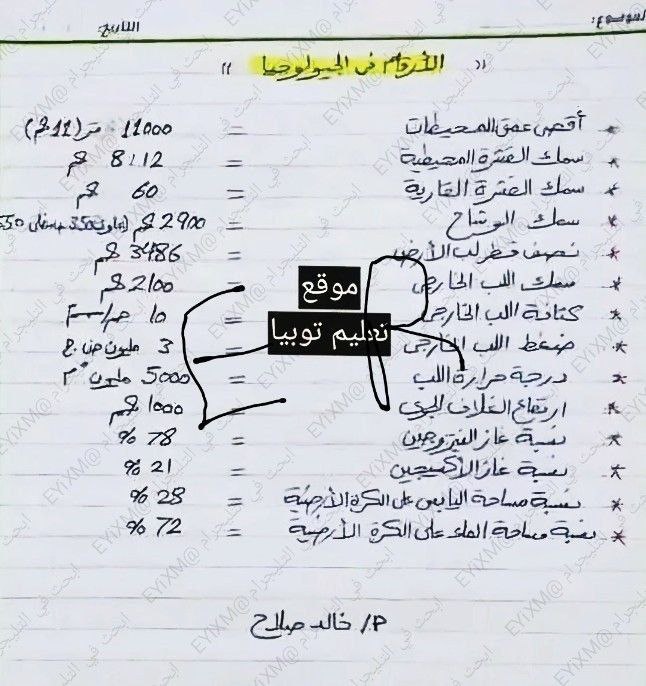 الموضوع:
التاريخ:
" الأرقام فى الجيولوجيا "
* أقصى عمق المحيطات = 11000 متر (11 كم)
* سمك القشرة المحيطية = 8:12 كم
* سمك القشرة القارية = 60 كم
* سمك الوشاح = 2900 كم
* نصف قطر لب الأرض = 3486 كم
* سمك اللب الخارجى = 2100 كم
* كثافة اللب الخارجى = 10 جم/سم
* ضغط اللب الخارجى = 3 مليون ض.ج
* درجة حرارة اللب = 5000 مليون °م
* ارتفاع الغلاف الجوى = 1000 كم
* نسبة غاز النيتروجين = 78 %
* نسبة غاز الأكسجين = 21 %
* نسبة مساحة اليابس على الكرة الأرضية = 28 %
* نسبة مساحة الماء على الكرة الأرضية = 72 %
موقع
تعليم توبيا
P/ خالد صلاح
ابحث في التليجرام @EYIXM